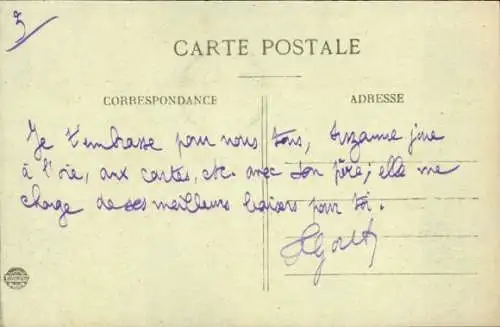 5
CARTE POSTALE
CORRESPONDANCE
ADRESSE
Je t'embrasse pour nous tous, Suzanne joue
à l'oie, aux cartes, etc. avec son père; elle me
charge de ses meilleurs baisers pour toi.